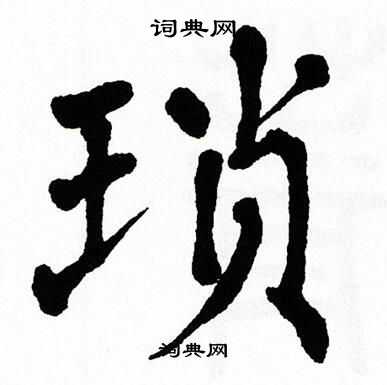 词典网
琐
词典网